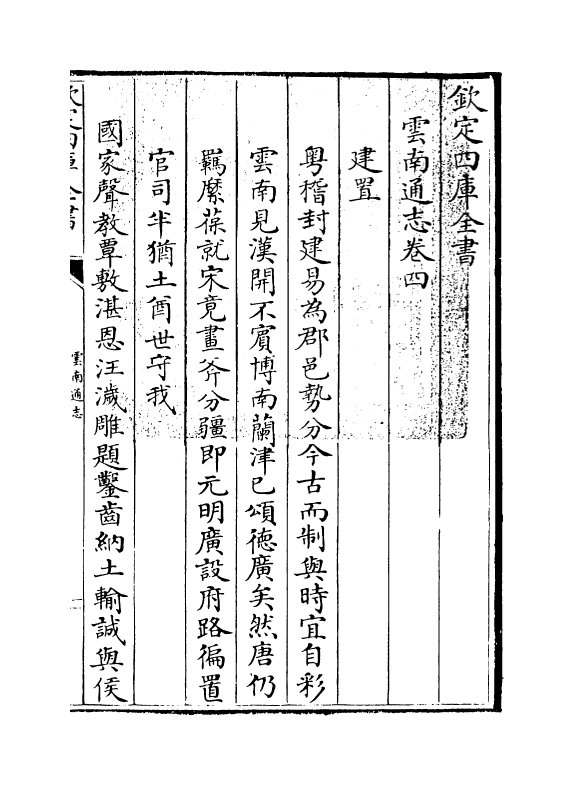 欽定四庫全書
雲南通志卷四
建置
粤稽封建易為郡邑勢分今古而制與時宜自彩
雲南見漢開不賓博南蘭津已頌德廣矣然唐仍
羈縻葆就宋竟畫斧分疆即元明廣設府路徧置
官司半猶土酋世守我
國家聲教覃敷湛恩汪濊雕題鑿齒納土輸誠與侯
欽定四庫全書
雲南通志